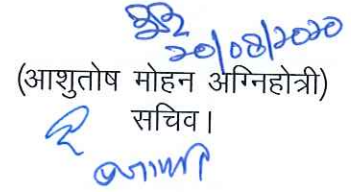 20/08/2020
(आशुतोष मोहन अग्निहोत्री)
सचिव।